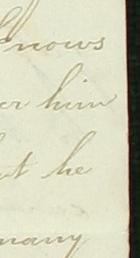 knows
er him
t he
many